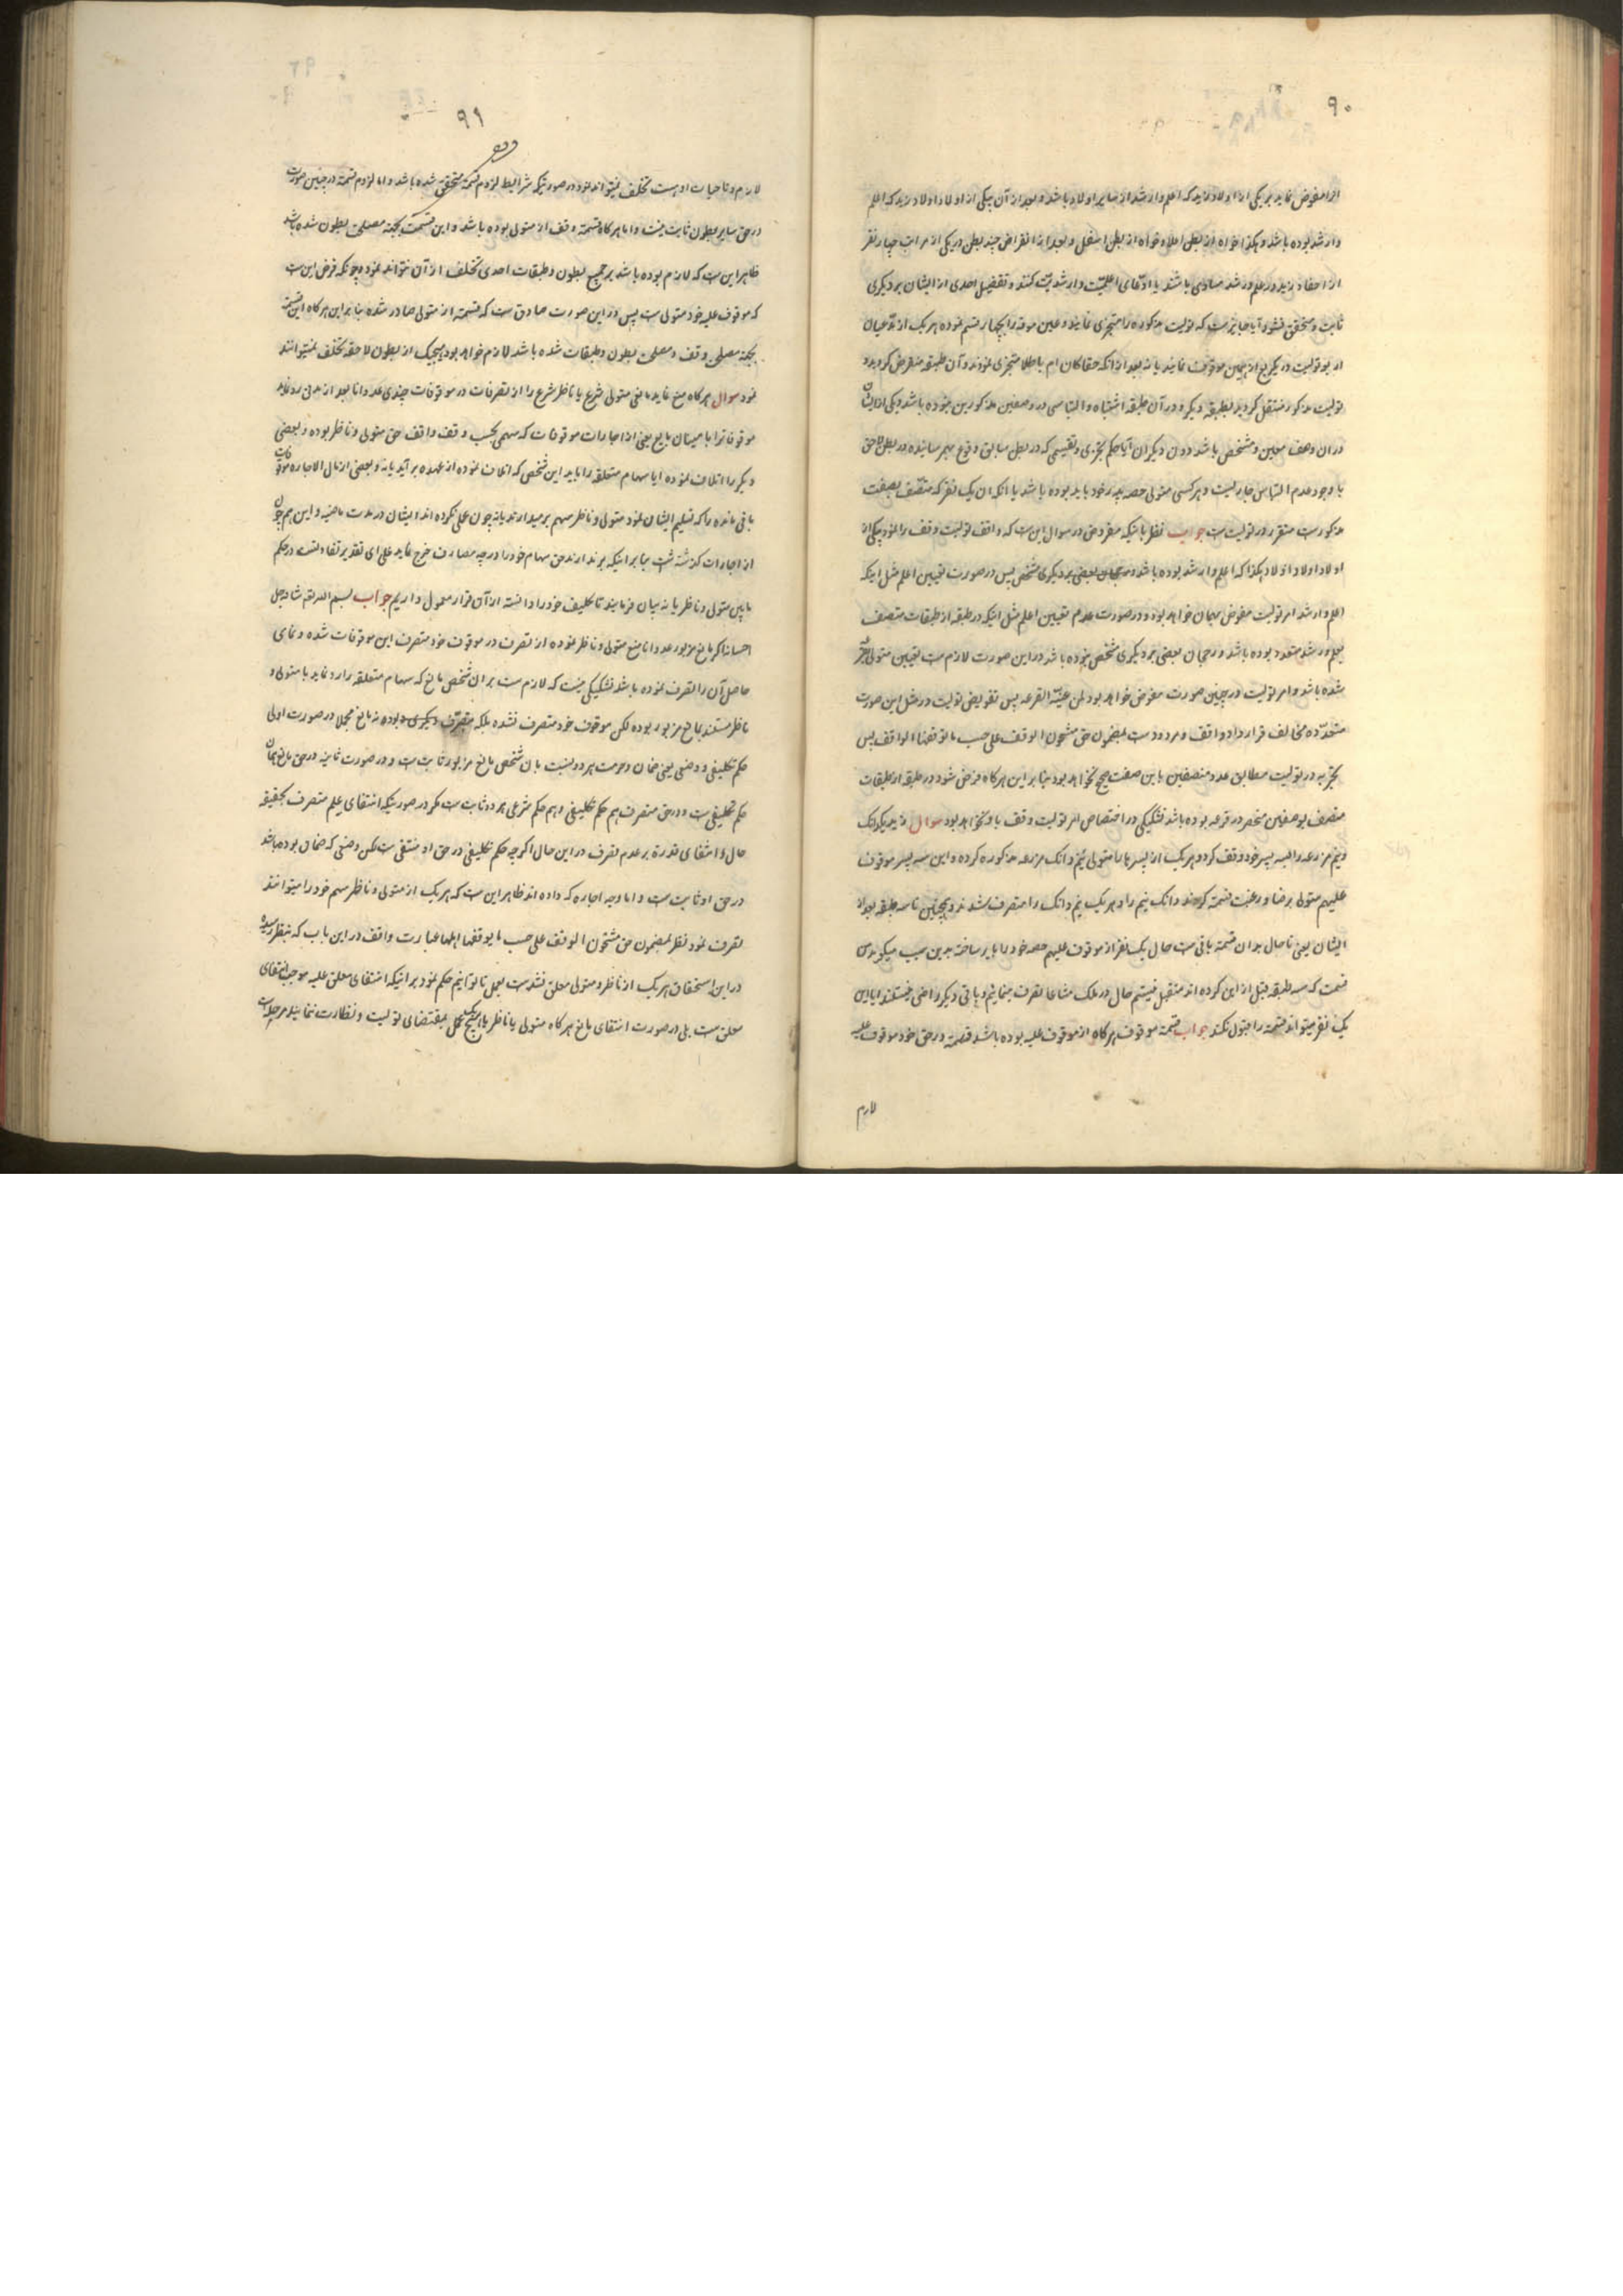 ۹۰
انرا مفوض نماید بریکی از اولاد زید که اعلم و ارشد از سایر اولاد باشد و بعد از آن بیکی از اولاد اولاد زید که اعلم
و ارشد بوده باشد و هکذا خواه از بطن اعلا و خواه از بطن اسفل و بعد از انقراض چند بطن در یکی از مراتب چهار نفر
از احفاد زید در علم و رشد مساوی باشند یا ادّعای اعلمیّت و ارشدیّت کنند و تفضیل احدی از ایشان بر دیگری
ثابت و محقق نشود آیا جایز است که تولیت مذکوره را متجزی نمایند و عین موقوفه را بچهار قسم نموده هر یک از مدّعیان
امر تولیت در یکربع از عین موقوفه نمایند یا نه بعد از انکه حقا کان ام باطلا متجزی نمودند و آن طبقه منقرض گردید و
تولیت مذکور منتقل گردید بطبقه دیگر و در آن طبقه اشتباه و التباسی در وصفین مذکورین نبوده باشد و یکی از ایشان
در ان وصف معین و مشخص باشد دون دیگران آیا حکم تجزی و تقسیمی که در بطن سابق وقوع بهم رسانیده در بطن لاحق
با وجود عدم التباس جاریست و هر کسی متولی حصه پدر خود باید بوده باشد یا انکه ان یک نفر که متصّف بصفت
مذکور است متفرد در تولیت است جواب نظر باینکه مفروض در سوال این است که واقف تولیت وقف را نمود بیکی از
اولاد اولاد اولاد هکذا که اعلم و ارشد بوده باشد و رجحان بعضی بر دیگری مشخص پس در صورت تعیین اعلم مثل اینکه
اعلم و ارشد امر تولیت مفوض بهمان خواهد بود و در صورت عدم تعیین اعلم مثل اینکه در طبقه از طبقات متصف
بعلم و رشد متعدد بوده باشد و رجحان بعضی بر دیگری مشخص نبوده باشد در این صورت لازم است تعیین متولی بقرعه
شده باشد و امر تولیت در چنین صورت مفوض خواهد بود لمن عیّنه القرعه پس تفویض تولیت در مثل این صورت
متعدّده مخالف قرارداد واقف و مردود است بمضمون حق مشحون الوقف علی حسب ما یوقفها الواقف پس
تجزیه در تولیت مطابق عدد متصفین باین صفت صحیح نخواهد بود بنابر این هرگاه فرض شود در طبقه از طبقات
متصف بوصفین منحصر در فرعه بوده باشد تشکیکی در اختصاص امر تولیت وقف باو نخواهد بود سوال زید یکدانک
و نیم مزرعه را بسه پسر خود وقف کرد و هر یک از پسرها را متولی نیم دانک مزرعه مذکوره کرده و این سه پسر موقوف
علیهم متولی برضا و رغبت قسمة کردند دانک نیم را و هر یک نیم دانک را متصرف شدند و همچنین تا سه طبقه بعد از
ایشان یعنی تا حال بدان قسمة باقی است حال یک نفر از موقوف علیهم حصه خود را بایر ساخته بدین سبب میگوید من
قسمت که سه طبقه قبل از این کرده اند متقبل نیستم حال در ملک مشاعا تصرف مینمائیم و باقی دیگر راضی نیستند ایا این
یک نفر میتواند قسمة را قبول نکند جواب قسمة موقوف هرگاه از موقوف علیه بوده باشد قسمة در حق خود موقوف علیه
لازم
۹۱
لازم و تا حیات او است تخلف نمیتواند نمود در صورتیکه شرایط لزوم قسمة متحقق شده باشد و اما لزوم قسمة در چنین صورت
در حق سایر بطون ثابت نیست و اما هرگاه قسمة وقف از متولی بوده باشد و این قسمت بجهة مصلحة بطون شده باشد
ظاهر این است که لازم بوده باشد بر جمیع بطون و طبقات احدی تخلف از آن نتواند نمود و چونکه فرض این است
که موقوف علیه خود متولی است پس در این صورت صادق است که قسمة از متولی صادر شده بنابر این هرگاه این قسمة
بجهة مصلحة وقف و مصلحة بطون و طبقات شده باشد لازم خواهد بود هیچیک از بطون لاحقه تخلف نمیتوانند
نمود سوال هرگاه منع نماید مانعی متولی شرع یا ناظر شرع را از تصرفات در موقوفات چندی عدوانا بعد از مدتی رد نماید
موقوفات را با میسان بایع یعنی از اجارات موقوفات که سهمی بحسب وقف واقف حق متولی و ناظر بوده و بعضی
دیگر را اتلاف نموده ایا سهام متعلقه را باید این شخص که اتلاف نموده از عهده بر آید یا نه و بعضی از مال الاجاره موقوفات
باقی مانده را که تسلیم ایشان نمود متولی و ناظر سهم بر میدارند یا نه چون عملی نکرده اند ایشان در مدت ماضیه و این هم چون
از اجارات گذشته است بنابر اینکه بر ندارند حق سهام خود را در چه مصارف خرج نماید علی ای تقدیر تفاوتست در حکم
ما بین متولی و ناظر یا نه بیان فرمایند تا تکلیف خود را دانسته از آن قرار معمول داریم جواب بسم الله تعالی شانه جل
احسانه اگر مانع مزبور عدوانا منع متولی و ناظر نموده از تصرف در موقوف خود متصرف این موقوفات شده و نمای
حاصل آن را تصرف نموده باشد تشکیکی نیست که لازم است بر ان شخص مانع که سهام متعلقه را رد نماید با متولی و
ناظر مستند بمانع مزبور بوده لکن موقوف خود متصرف نشده بلکه متصرّف دیگری بوده نه مانع مجملا در صورت اولی
حکم تکلیفی و وضعی یعنی ضمان و حرمت هر دو نسبت بان شخص مانع مزبور ثابت است و در صورت ثانیه در حق مانع همان
حکم تکلیفی است و در حق متصرف هم حکم تکلیفی و هم حکم شرعی هر دو ثابت است مگر در صورتیکه انتفای علم متصرف بحقیقه
حال و انتفای قدرة بر عدم تصرف در این حال اگرچه حکم تکلیفی در حق او منتفی است لکن وضعی که ضمان بوده باشد
در حق او ثابت است و اما وجه اجاره که داده اند ظاهر این است که هر یک از متولی و ناظر سهم خود را میتوانند
تصرف نمود نظر بمضمون حق مشحون الوقف علی حسب ما یوقفها اهلها عبارت واقف در این باب که بنظر رسیده
در این استحقاق هر یک از ناظر و متولی معلق نشده است بعمل تا توانیم حکم نمود بر اینکه انتفای معلق علیه موجب انتفای
معلق است بلی در صورت انتفای مانع هرگاه متولی یا ناظر یا هیچیک عمل بمقتضای تولیت و نظارت ننمایند مرحله است